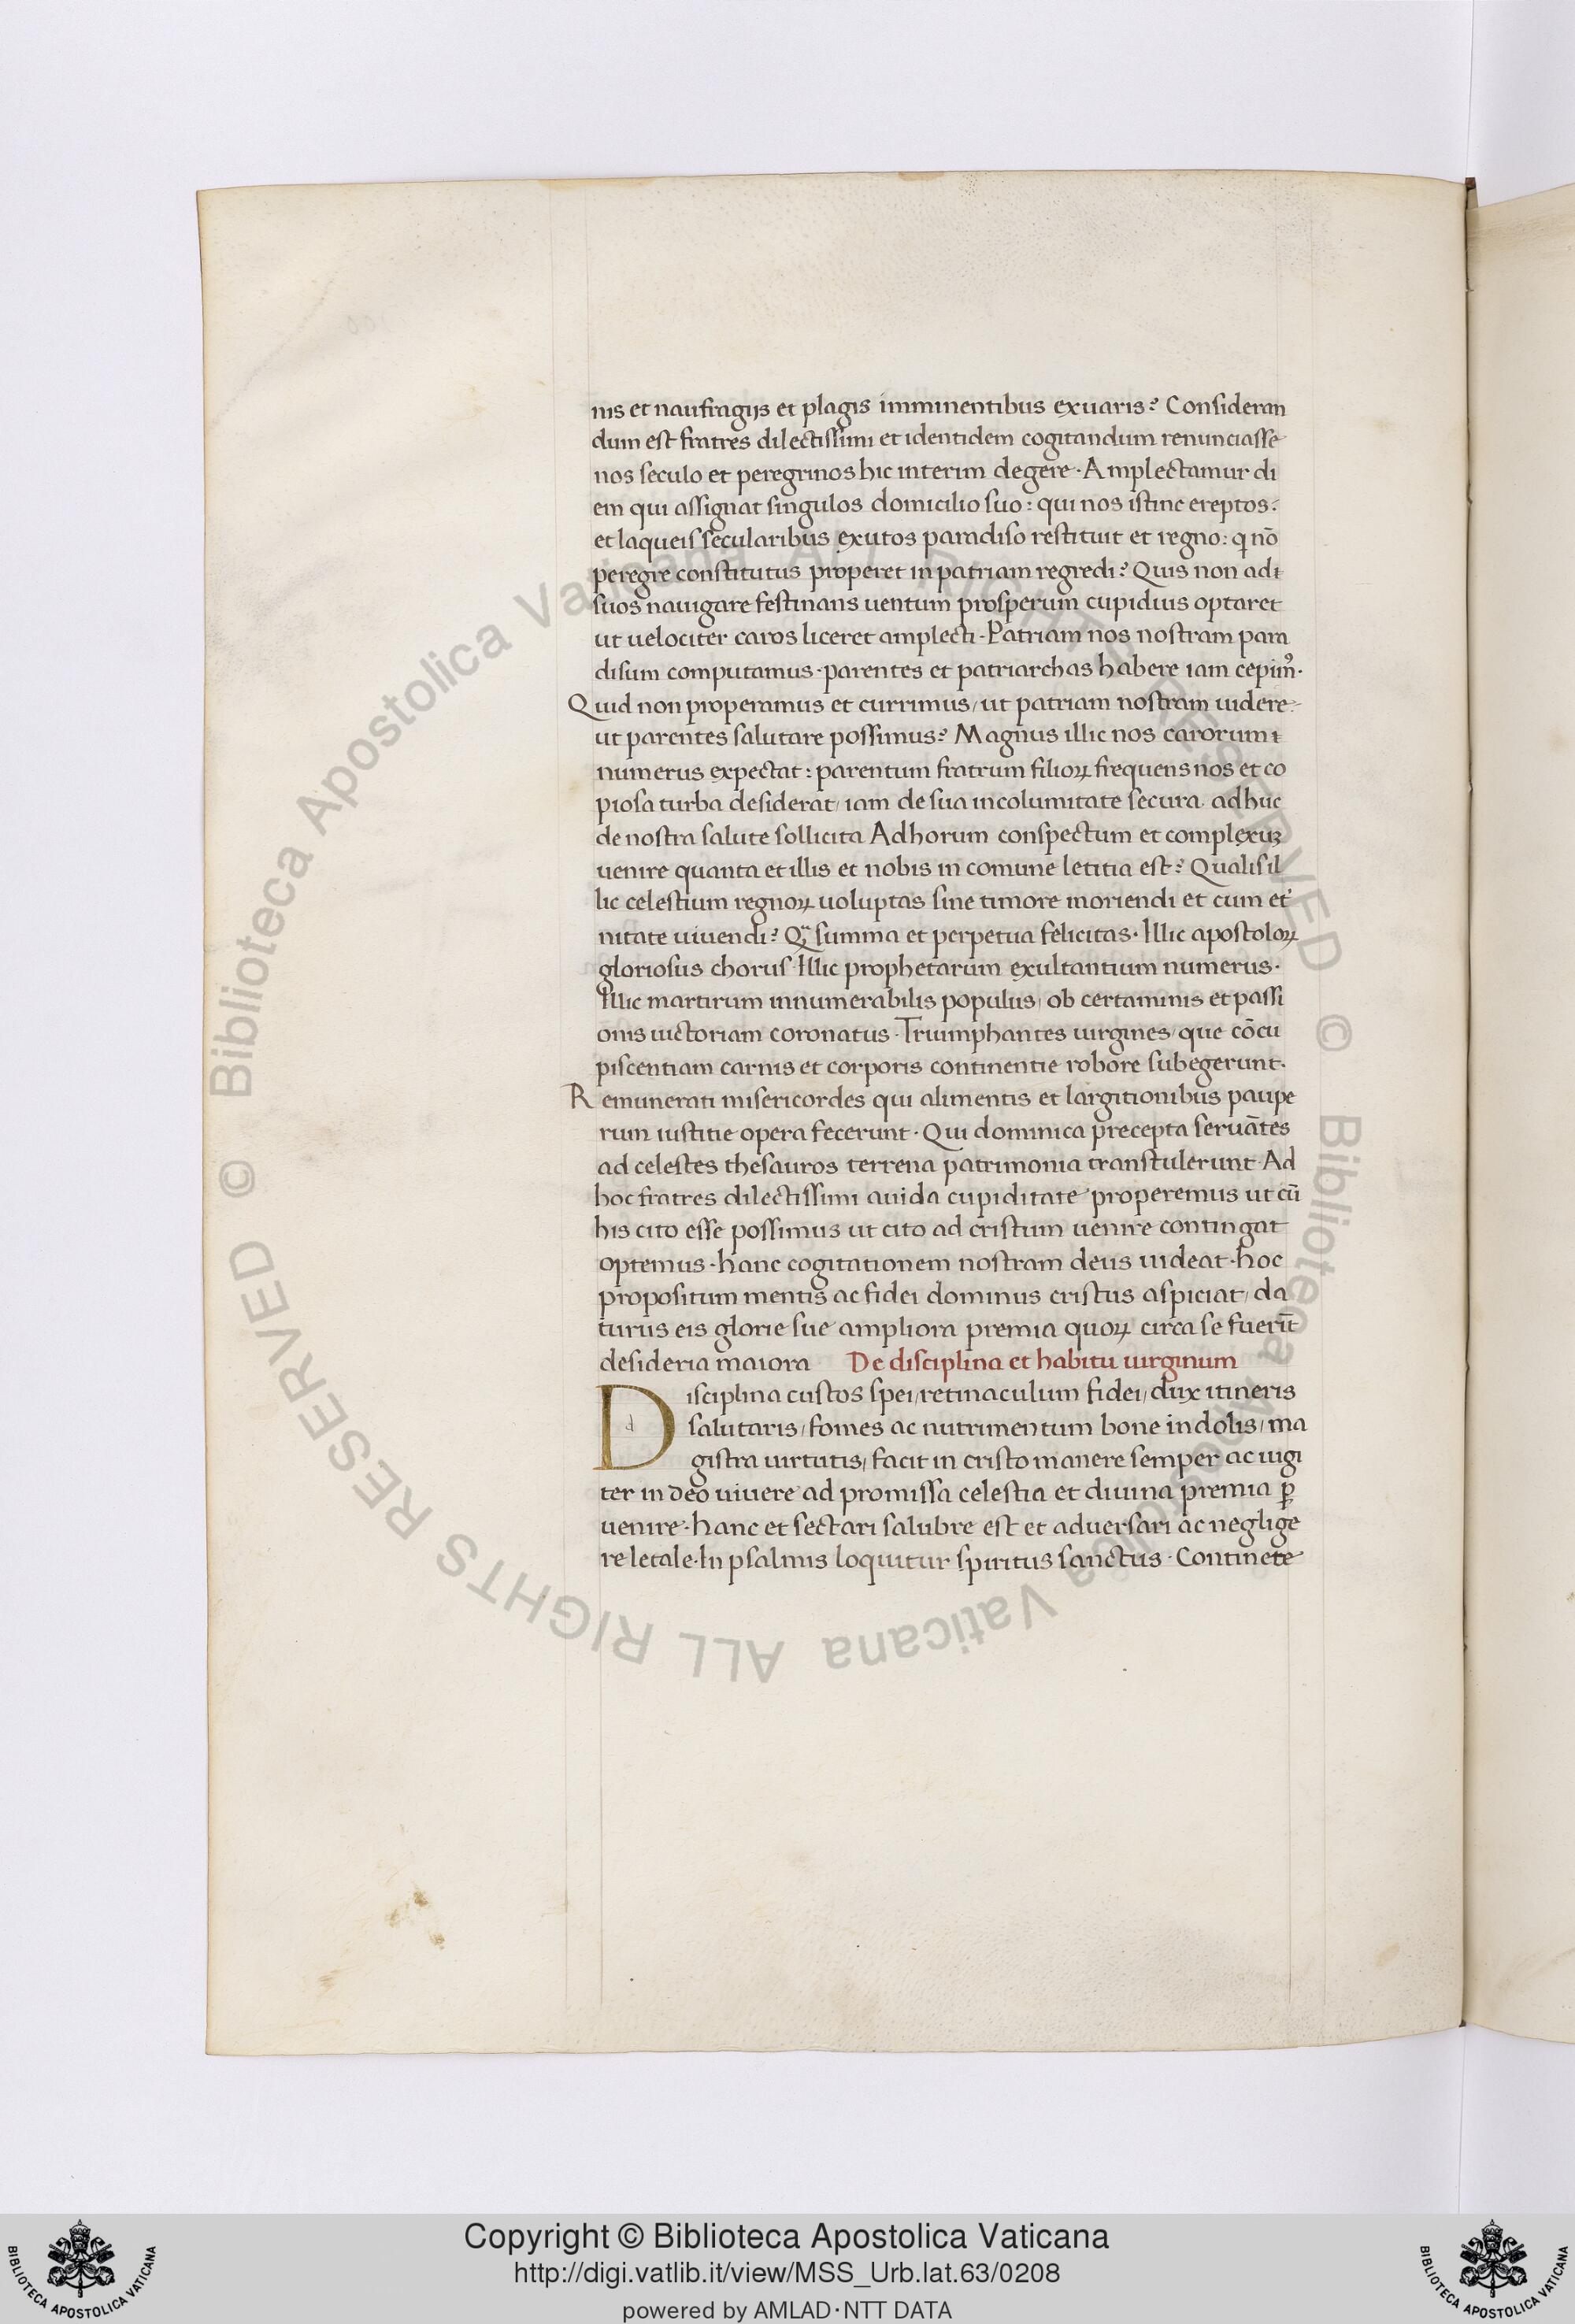 nis et naufragijs et plagis imminentibus exuaris? Consideran
dum est fratres dilectissimi et identidem cogitandum renunciasse
nos seculo et peregrinos hic interim degere · Amplectamur di
em qui assignat singulos domicilio suo: qui nos istinc ereptos:
et laqueis secularibus exutos paradiso restituit et regno: q nō
peregre constitutus properet in patriam regredi? Quis non ad
suos nauigare festinans uentum prosperum cupidius optaret
ut uelociter caros liceret amplecti · Patriam nos nostram para
disum computamus · parentes et patriarchas habere iam cepimꝰ ·
Quid non properamus et currimus / ut patriam nostram uidere
ut parentes salutare possimus? Magnus illic nos carorum
numerus expectat: parentum fratrum filioꝝ frequens nos et co
piosa turba desiderat / iam de sua incolumitate secura · adhuc
de nostra salute sollicita Ad horum conspectum et complexuꝫ
uenire quanta et illis et nobis in comune letitia est? Qualis il
lic celestium regnoꝝ uoluptas sine timore moriendi et cum et͛
nitate uiuendi? Qͣ summa et perpetua felicitas · Illic apostoloꝝ
gloriosus chorus · Illic prophetarum exultantium numerus ·
Illic martirum innumerabilis populus / ob certaminis et passi
onis uictoriam coronatus · Triumphantes uirgines / que cōcu
piscentiam carnis et corporis continentie robore subegerunt ·
Remunerati misericordes qui alimentis et largitionibus paupe
rum iustitie opera fecerunt · Qui dominica precepta seruātes
ad celestes thesauros terrena patrimonia transtulerunt · Ad
hoc fratres dilectissimi auida cupiditate properemus ut cū
his cito esse possimus ut cito ad cristum uenire contingat
optemus · hanc cogitationem nostram deus uideat · hoc
propositum mentis ac fidei dominus cristus aspiciat / da
turus eis glorie sue ampliora premia quoꝝ circa se fuerūt
desideria maiora De disciplina et habitu uirginum
Disciplina custos spei / retinaculum fidei / dux itineris
salutaris / fomes ac nutrimentum bone indolis / ma
gistra uirtutis / facit in cristo manere semper ac iugi
ter in deo uiuere ad promissa celestia et diuina premia ꝑ
uenire · hanc et sectari salubre est et aduersari ac neglige
re letale · In psalmis loquitur spiritus sanctus · Continete
© Biblioteca Apostolica Vaticana ALL RIGHTS RESERVED
© Biblioteca Apostolica Vaticana ALL RIGHTS RESERVED
BIBLIOTECA APOSTOLICA VATICANA
Copyright © Biblioteca Apostolica Vaticana
http://digi.vatlib.it/view/MSS_Urb.lat.63/0208
powered by AMLAD·NTT DATA
BIBLIOTECA APOSTOLICA VATICANA